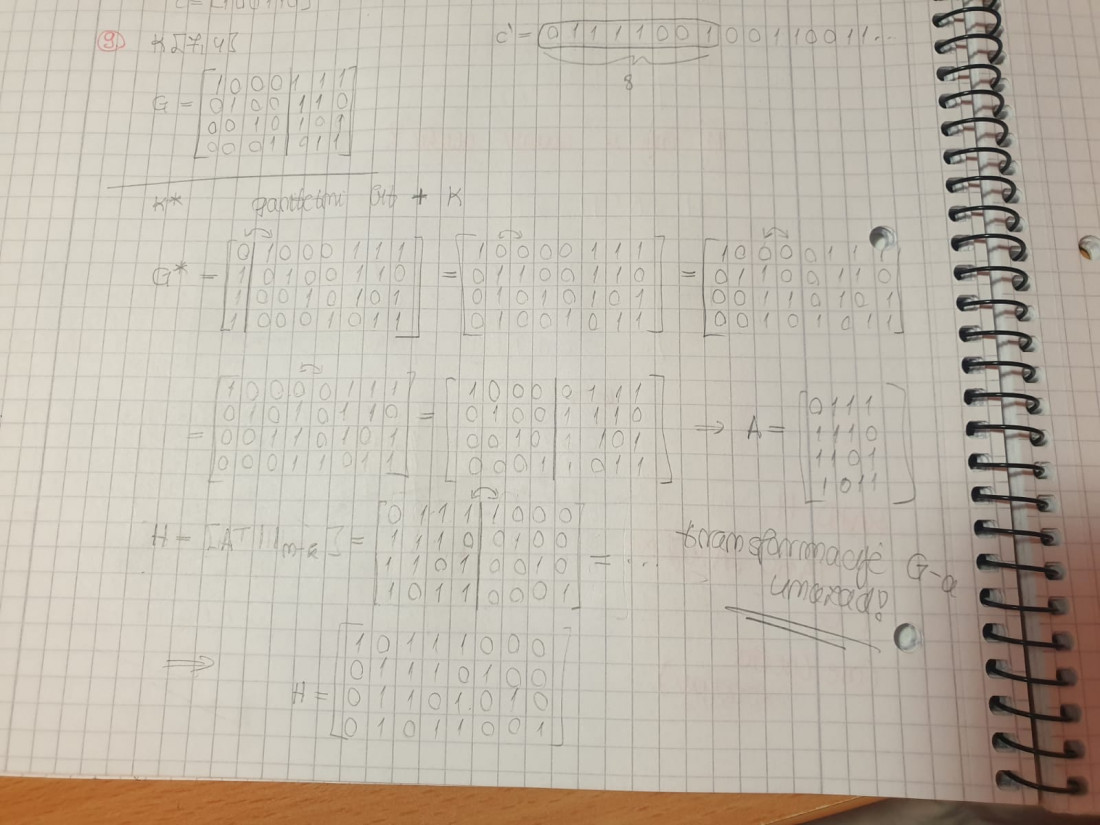 9) K[7,4]
c' = 0 1 1 1 1 0 0 1 0 0 1 1 0 0 1 1 ...
8
G = [1 0 0 0 | 1 1 1
0 1 0 0 | 1 1 0
0 0 1 0 | 1 0 1
0 0 0 1 | 0 1 1]
K* paritetni bit + K
G* = [0 | 1 0 0 0 1 1 1 = [1 0 0 0 0 1 1 1 = [1 0 0 0 0 1 1 1
1 | 0 1 0 0 1 1 0 0 1 1 0 0 1 1 0 0 1 1 0 0 1 1 0
1 | 0 0 1 0 1 0 1 0 1 0 1 0 1 0 1 0 0 1 1 0 1 0 1
1 | 0 0 0 1 0 1 1] 0 1 0 0 1 0 1 1] 0 0 1 0 1 0 1 1]
= [1 0 0 0 0 1 1 1 = [1 0 0 0 | 0 1 1 1 ⇒ A = [0 1 1 1
0 1 0 1 0 1 1 0 0 1 0 0 | 1 1 1 0 1 1 1 0
0 0 1 1 0 1 0 1 0 0 1 0 | 1 1 0 1 1 1 0 1
0 0 0 1 1 0 1 1] 0 0 0 1 | 1 0 1 1] 1 0 1 1]
H = [A^T | I_{n-k}] = [0 1 1 1 | 1 0 0 0 = ...
1 1 1 0 | 0 1 0 0
1 1 0 1 | 0 0 1 0
1 0 1 1 | 0 0 0 1]
transformacije G-a
unazad!
⇒ H = [1 0 1 1 1 0 0 0
0 1 1 1 0 1 0 0
0 1 1 0 1 0 1 0
0 1 0 1 1 0 0 1]